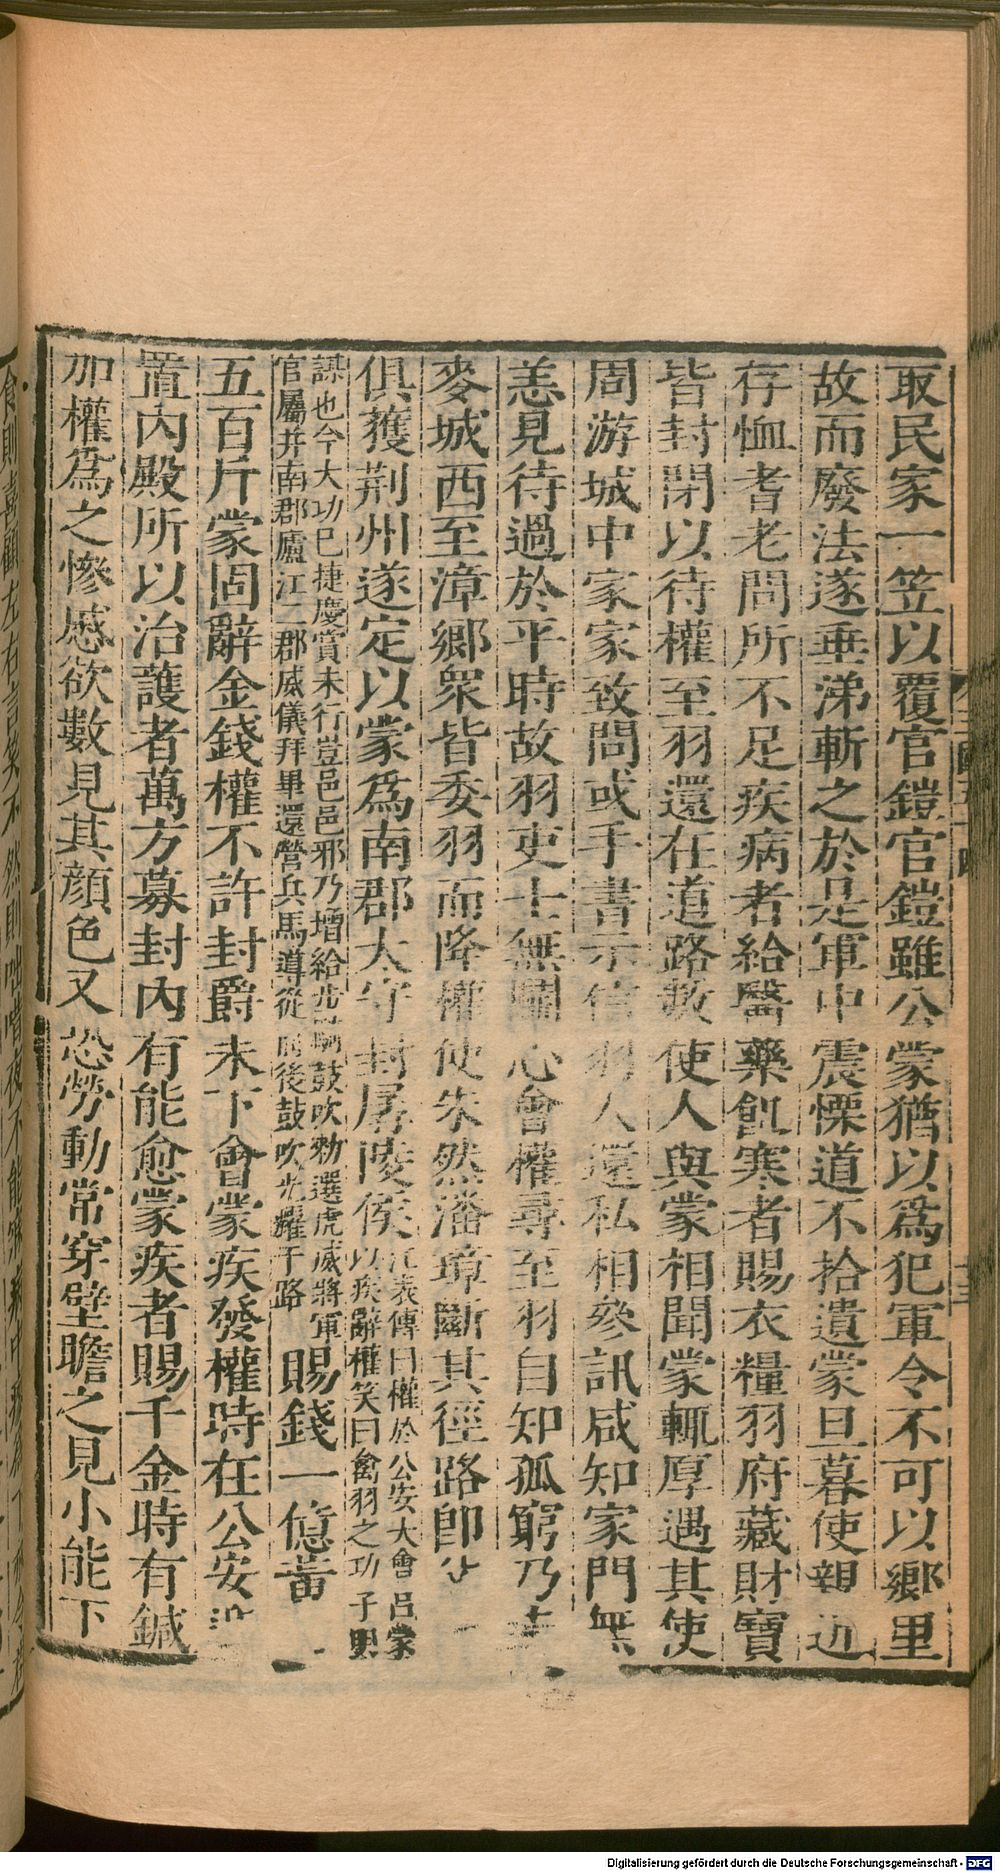 取民家一笠以覆官鎧官鎧雖公蒙猶以爲犯軍令不可以鄉里
故而廢法遂垂涕斬之於是軍中震慄道不拾遺蒙旦暮使親近
存恤耆老問所不足疾病者給醫藥飢寒者賜衣糧羽府藏財寶
皆封閉以待權至羽還在道路數使人與蒙相聞蒙輒厚遇其使
周游城中家家致問或手書示信羽人還私相參訊咸知家門無
恙見待過於平時故羽吏士無鬭心會權尋至羽自知孤窮乃走
麥城西至漳鄉衆皆委羽而降權使朱然潘璋斷其徑路即父
俱獲荆州遂定以蒙爲南郡太守封孱陵侯
江表傳曰權於公安大會呂蒙
以疾辭權笑曰禽羽之功子明
謀也今大功已捷慶賞未行豈邑邑邪乃增給步騎鼓吹勑選虎威將軍
官屬并南郡廬江二郡威儀拜畢還營兵馬導從前後鼓吹光耀于路
賜錢一億黃
五百斤蒙固辭金錢權不許封爵未下會蒙疾發權時在公安
置内殿所以治護者萬方募封内有能愈蒙疾者賜千金時有鍼
加權爲之慘慼欲數見其顔色又恐勞動常穿壁瞻之見小能下
食則喜顧左右言笑不然則咄唶夜不能
三國五十四
十三
Digitalisierung gefördert durch die Deutsche Forschungsgemeinschaft - DFG